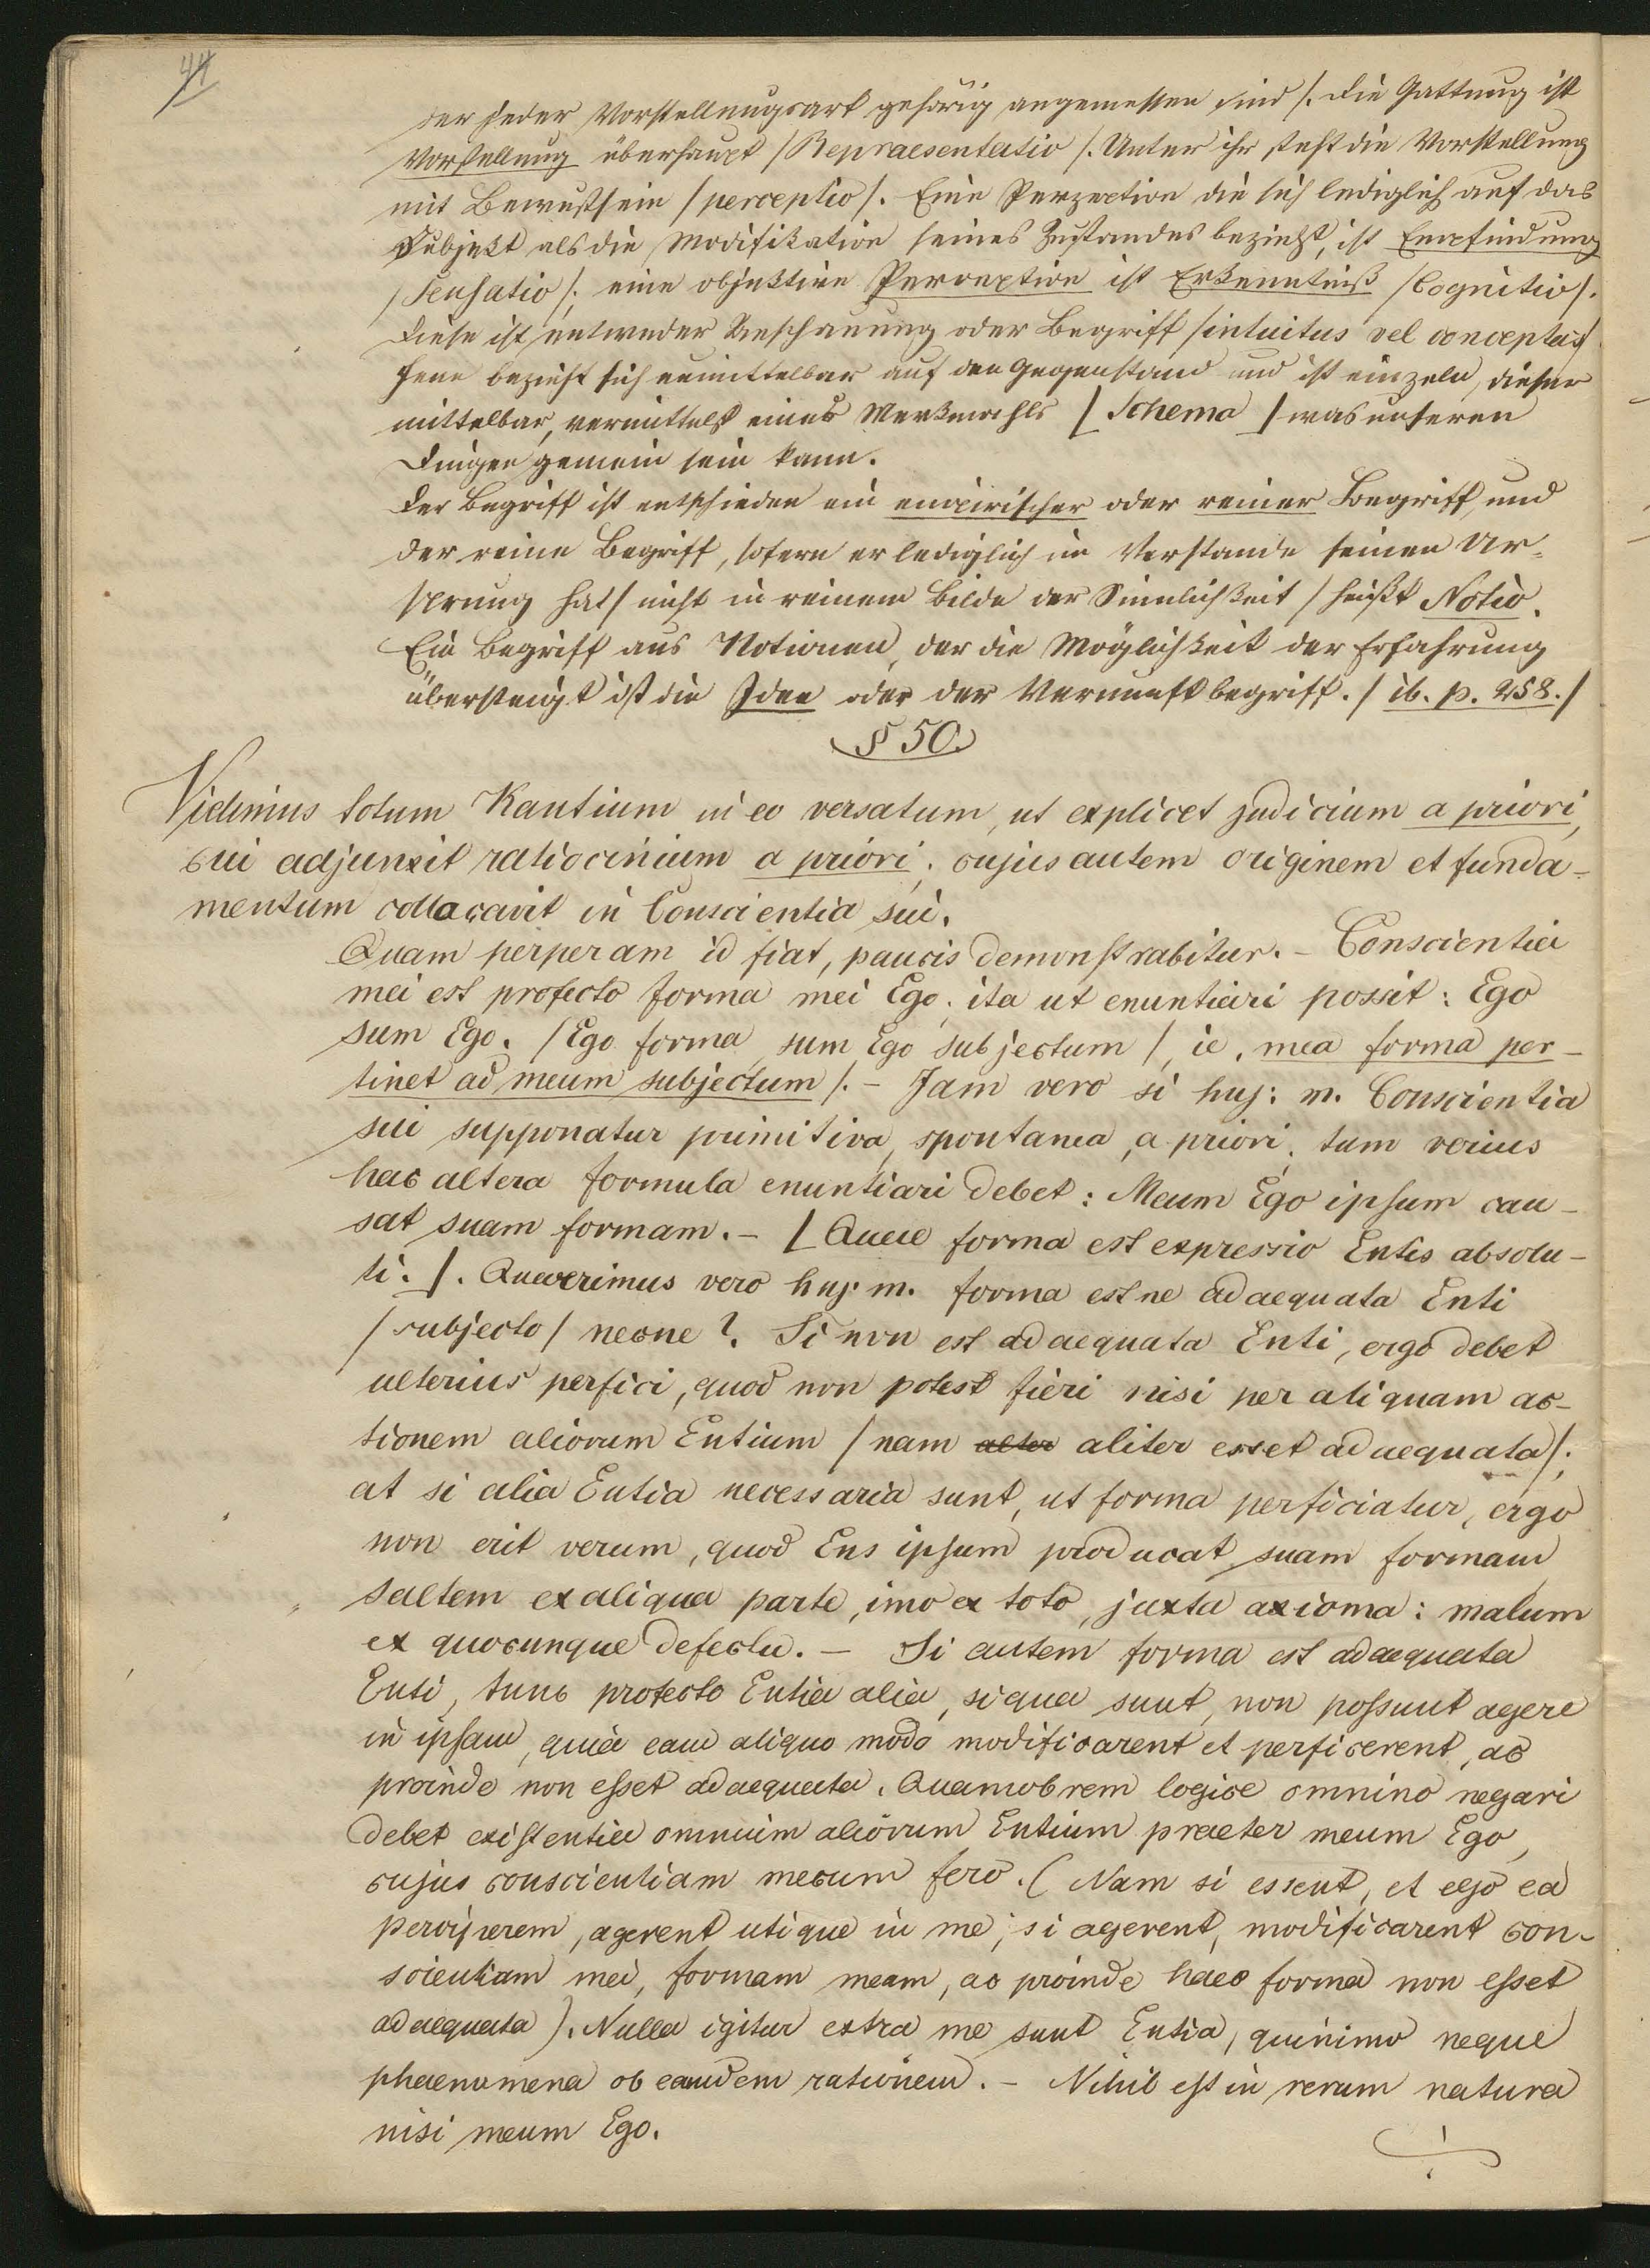 44
der jeder Vorstellungsart gehörig angemessen sind /. Die Gattung ist
Vorstellung überhaupt /Repraesentatio/. Unter ihr steht die Vorstellung
mit Bewußtsein /perceptio/. Eine Perzeption die sich lediglich auf das
Subjekt als die Modifikation seines Zustandes bezieht, ist Empfindung
/Sensatio/; eine objektive Perception ist Erkenntniß /Cognitio/.
Diese ist entweder Anschauung oder Begriff /intuitus vel conceptus/
Jene bezieht sich unmittelbar auf den Gegenstand und ist einzeln, dieser
mittelbar, vermittelst eines Merkmahls [Schema] was mehreren
Dingen gemein sein kann.
Der Begriff ist entschieden ein empirischer oder reiner Begriff, und
der reine Begriff, sofern er lediglich im Verstande seinen Ur-
sprung hat / nicht in reinem Bilde der Sinnlichkeit / heißt Notio.
Ein Begriff aus Notionen, der die Möglichkeit der Erfahrung
übersteigt ist die Idee oder der Vernunftbegriff. / ib. p. 258./
§ 50.
Vidimus totum Kantium in eo versatum, ut explicet judicium a priori,
cui adjunxit ratiocinium a priori; cujus autem originem et funda-
mentum collocavit in Conscientia sui.
Quam perperam id fiat, paucis demonstrabitur. - Conscientia
mei est profecto forma mei Ego; ita ut enuntiari possit: Ego
sum Ego. /Ego forma, sum Ego subjectum /, ie. mea forma per-
tinet ad meum subjectum /. - Jam vero si huj: m. Conscientia
sui supponatur primitiva, spontanea, a priori, tum verius
hac altera formula enuntiari debet: Meum Ego ipsum cau-
sat suam formam. - [Quae forma est expressio Entis absolu-
ti.]. Quaerimus vero huj. m. forma estne adaequata Enti
/subjecto/ necne? Si non est adaequata Enti, ergo debet
ulterius perfici, quod non potest fieri nisi per aliquam ac-
tionem aliorum Entium /nam alter aliter esset adaequata/;
at si alia Entia necessaria sunt, ut forma perficiatur, ergo
non erit verum, quod Ens ipsum producat suam formam
saltem ex aliqua parte, imo ex toto, juxta axioma: malum
ex quocunque defectu. - Si autem forma est adaequata
Enti, tunc profecto Entia alia, siqua sunt, non possunt agere
in ipsam, quia eam aliquo modo modificarent et perficerent, ac
proinde non esset adaequata. Quamobrem logice omnino negari
debet existentia omnium aliorum Entium praeter meum Ego,
cujus conscientiam mecum fero. (Nam si essent, et ego ea
perciperem, agerent utique in me; si agerent, modificarent con-
scientiam mei, formam meam, ac proinde haec forma non esset
adaequata). Nulla igitur extra me sunt Entia, quinimo neque
phaenomena ob eamdem rationem. - Nihil est in rerum natura
nisi meum Ego.